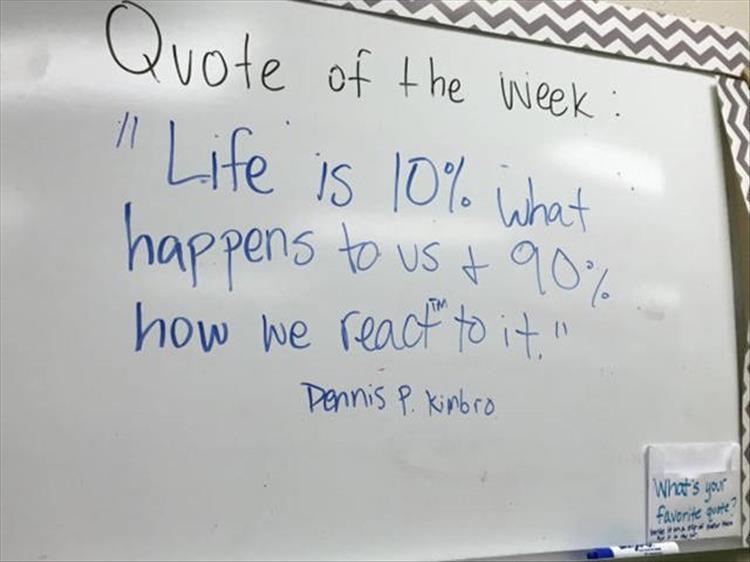 Quote of the week:
"Life is 10% what
happens to us + 90%
how we react™ to it."
Dennis P. Kimbro
What's your
favorite quote?